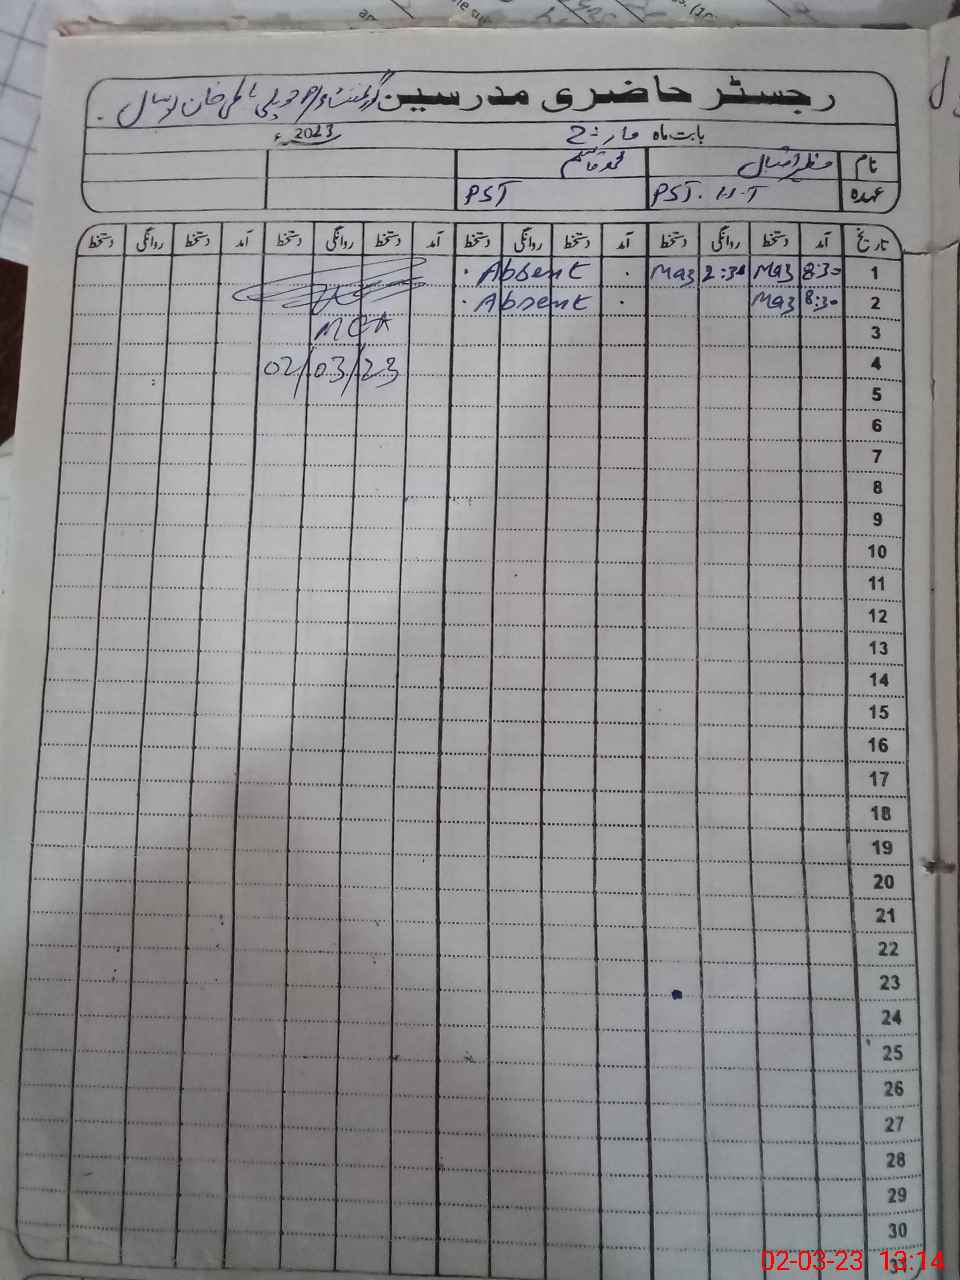 رجسٹر حاضری مدرسین گورنمنٹ
بابت ماہ مارچ 2023ء
نام محمد قاسم
عہدہ PST. H.T PST
تاریخ آمد دستخط روانگی دستخط آمد دستخط روانگی دستخط آمد دستخط روانگی دستخط آمد دستخط روانگی دستخط
1 8:30 Maz 2:30 Maz . Absent .
2 8:30 Maz . Absent .
3 MEA
4 02/03/23
5
6
7
8
9
10
11
12
13
14
15
16
17
18
19
20
21
22
23
24
25
26
27
28
29
30
31
02-03-23 13:14